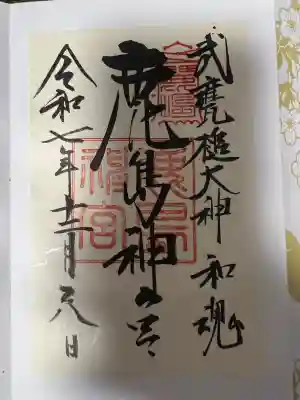 武甕槌大神 和魂
鹿島神宮
令和七年十二月 日
鹿島
神宮